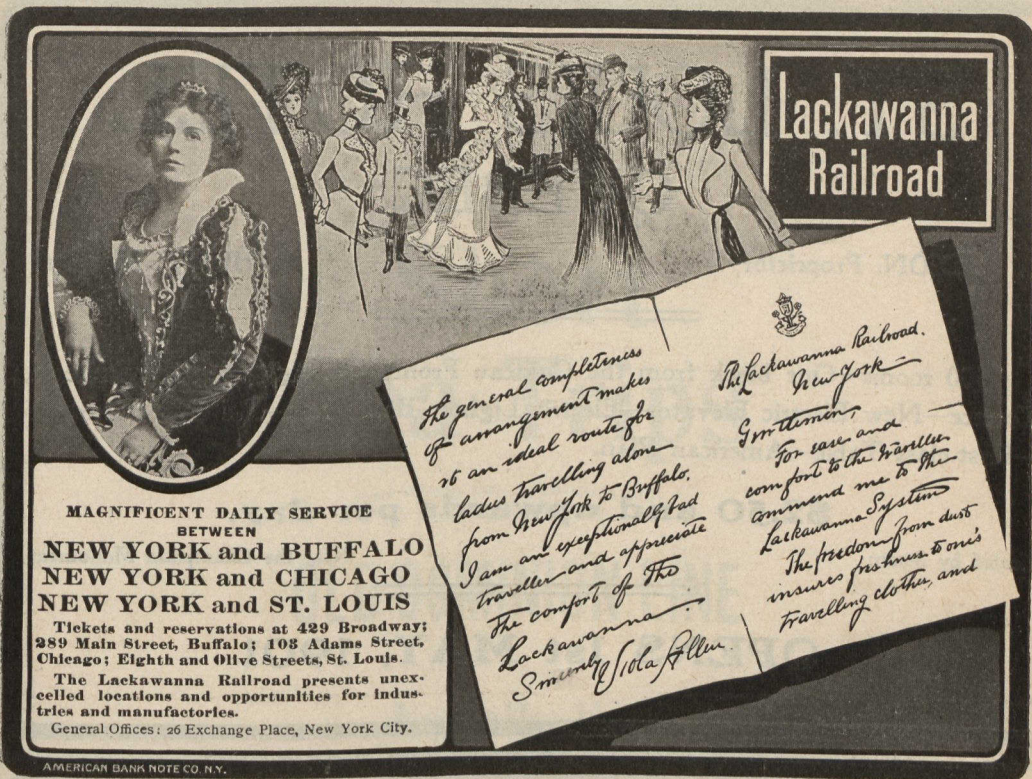 Lackawanna
Railroad
The Lackawanna Railroad.
New York—
Gentlemen,
For ease and
comfort to the traveller
commend me to the
Lackawanna System
The freedom from dust
insures freshness to one's
travelling clothes, and
the general completeness
of arrangement makes
it an ideal route for
ladies travelling alone
from New York to Buffalo.
I am an exceptionally bad
traveller and appreciate
the comfort of the
Lackawanna.
Sincerely Viola Allen
MAGNIFICENT DAILY SERVICE
BETWEEN
NEW YORK and BUFFALO
NEW YORK and CHICAGO
NEW YORK and ST. LOUIS
Tickets and reservations at 429 Broadway;
289 Main Street, Buffalo; 103 Adams Street,
Chicago; Eighth and Olive Streets, St. Louis.
The Lackawanna Railroad presents unex-
celled locations and opportunities for indus-
tries and manufactories.
General Offices: 26 Exchange Place, New York City.
AMERICAN BANK NOTE CO. N.Y.